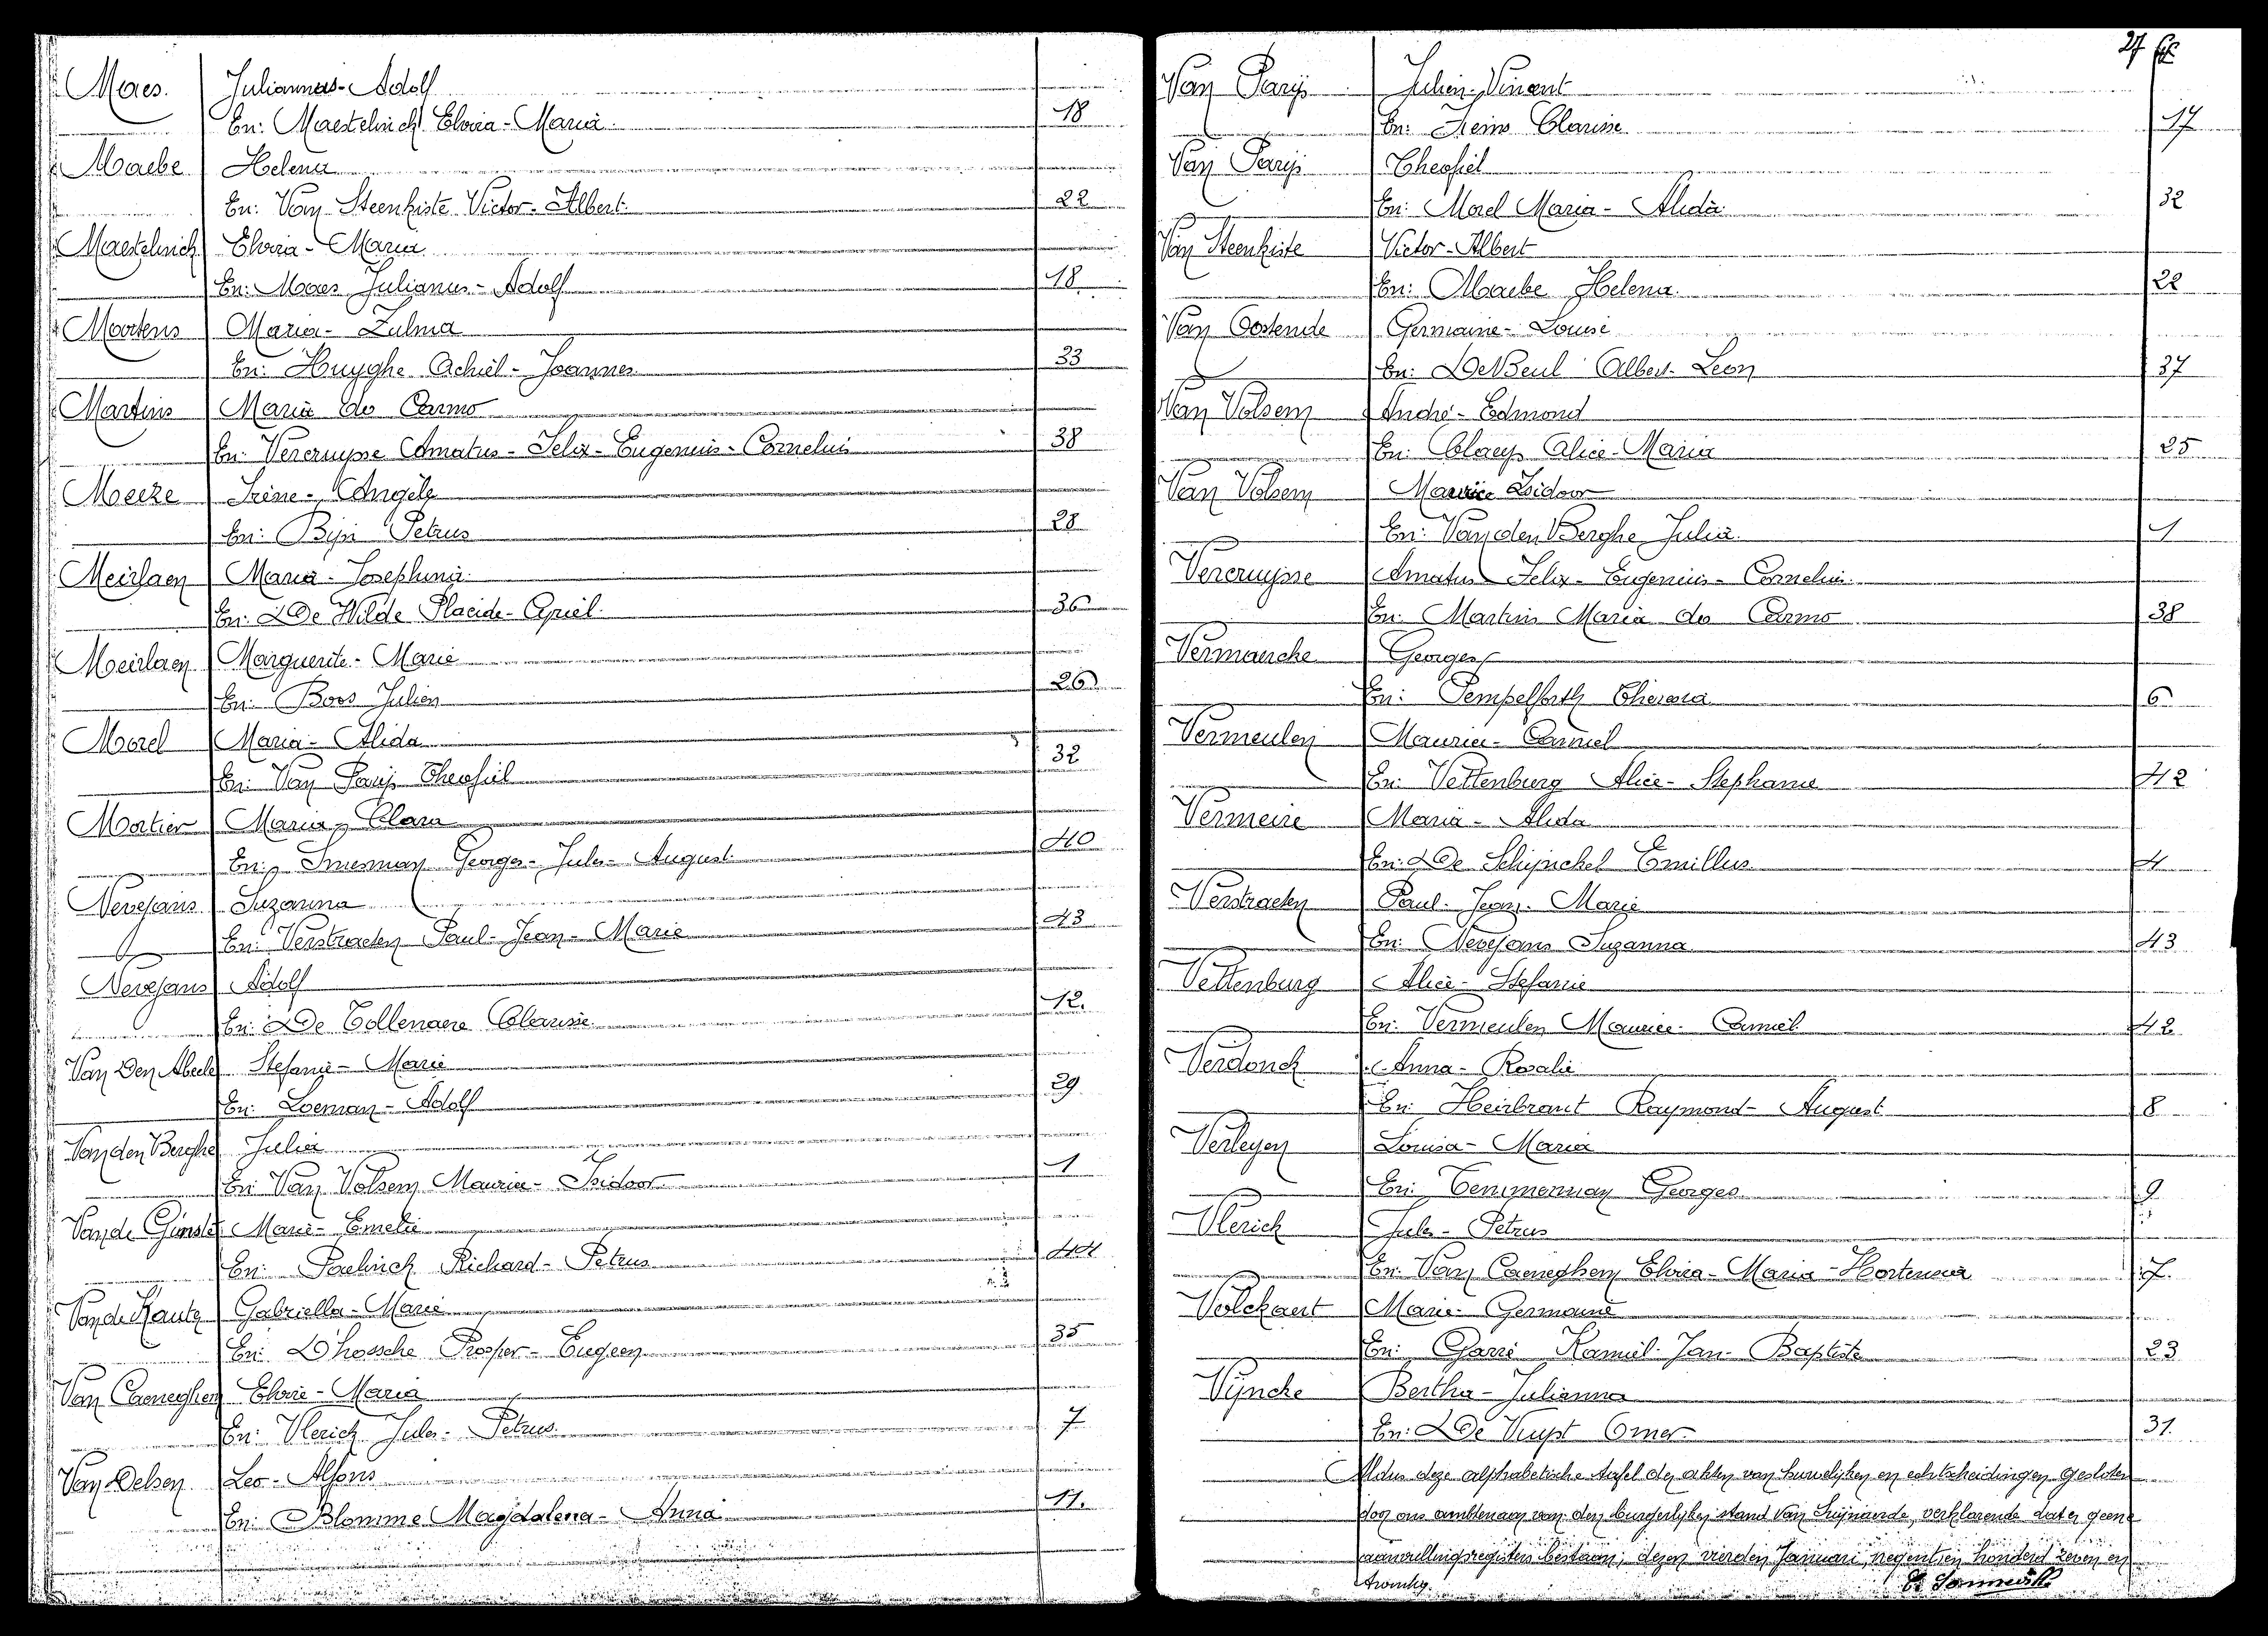 Maes. Juliannus-Adolf
En: Maertelinck Elvira-Maria 18
Maebe Helena
En: Van Steenkiste Victor-Albert 22
Maertelinck Elvira-Maria
En: Maes Julianus-Adolf 18
Martens Maria-Zulma
En: Huyghe Achiel-Joannes 33
Martins Maria do Carmo
En: Vercruysse Amatus-Felix-Eugenius-Cornelius 38
Meeze Irène-Angèle
En: Bijn Petrus 28
Meirlaen Maria-Josephina
En: De Wilde Placide-Cyriel 36
Meirlaen Marguerite-Marie
En: Boes Julien 26
Morel Maria-Alida
En: Van Parijs Theofiel 32
Mortier Maria-Clara
En: Snesman Georges-Jules-August 40
Nevejans Suzanna
En: Verstraeten Paul-Jean-Marie 43
Nevejans Adolf
En: De Tollenaere Clarisse 12.
Van Den Abeele Stefanie-Marie
En: Loeman-Adolf 29
Van den Berghe Julia
En Van Volsem Maurice-Isidoor 1
Van de Ginste Marie-Emelie
En: Paelinck Richard-Petrus 44
Van de Gabriella-Marie
En: D'hossche Prosper-Eugeen 35
Van Caeneghem Elvire-Maria
En: Vlerick Jules-Petrus 7
Van Delsen Leo-Alfons
En: Blomme Magdalena-Anna 11.
27
Van Parijs Julien-Vincent
En: Heins Clarisse 17
Van Parijs Theofiel
En: Morel Maria-Alida 32
Van Steenkiste Victor-Albert
En: Maebe Helena 22
Van Oostende Germaine-Louise
En: De Beul Albert-Leon 37
Van Volsem André-Edmond
En: Claeys Alice-Maria 25
Van Volsem Maurice Isidoor
En: Van den Berghe Julia 1
Vercruysse Amatus Felix-Eugenius-Cornelius
En: Martins Maria do Carmo 38
Vermaercke Georges
En: Tempelforth 6
Vermeulen Maurice-Camiel
En: Vettenburg Alice-Stephanie 42
Vermeire Maria-Alida
En: De Schijnckel Emillus 4
Verstraeten Paul-Jean-Marie
En: Nevejans Suzanna 43
Vettenburg Alice-Stefanie
En: Vermeulen Maurice-Camiel 42
Verdonck Anna-Rosalie
En: Heirbrant Raymond-August 8
Verleyen Louisa-Maria
En: Temmerman Georges 9
Vlerick Jules-Petrus
En: Van Caeneghem Elvira-Maria-Hortensia 7.
Volckaert Marie-Germaine
En: Garré Kamiel-Jan-Baptiste 23
Vijncke Bertha-Julianna
En: De Vuyst Omer 31.
Aldus deze alphabetische tafel der akten van huwelijken en echtscheidingen gesloten
door ons ambtenaar van den burgerlijken stand van Zwijnaarde, verklarende dat er geene
aanvullingsregisters bestaan; dezen vierden Januari, negentien honderd zeven en
twintig.